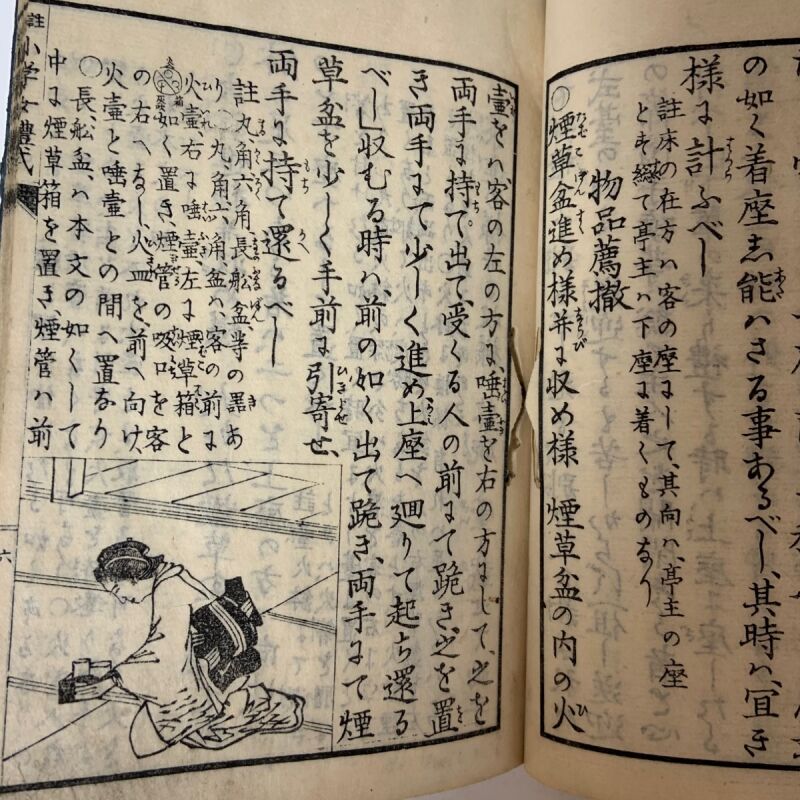 の如く着座志能ハさる事あるべし、其時ハ、宜き
様に計ふべし
註床の在方ハ客の座にして、其向ハ、亭主の座
とす、総て亭主ハ下座に着くものなり
物品薦撤
〇煙草盆進め様并に収め様 煙草盆の内の火
壷をハ、客の左の方に、唾壷を右の方にして、之を
両手に持て出て、受くる人の前にて跪き、之を置
き両手にて少しく進め上座へ廻りて起ち還る
べし」収むる時ハ、前の如く出て跪き、両手にて煙
草盆を少しく手前に引寄せ、
両手に持て還るべし
註丸、角六角長舩盆等の器あ
り〇丸、角、六角盆ハ、客の前に
火壷右は唾壷、左は煙草箱と
如く置き、煙管の吸口を客
の右へなし、火皿を前へ向け、
〇長、舩盆、ハ本文の如くして
火壷と唾壷との間へ置なり
中は煙草箱を置き、煙管ハ前
註
小学女禮式
六